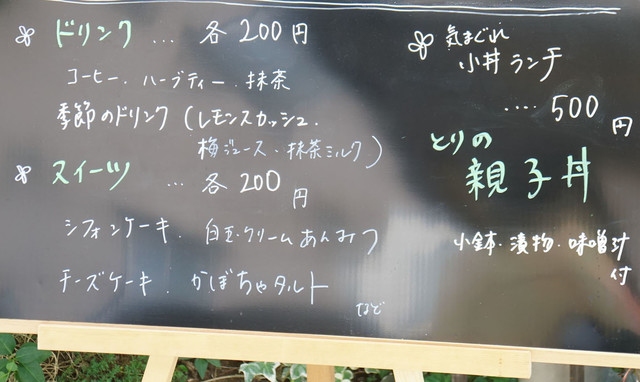 ドリンク … 各200円
コーヒー・ハーブティー・抹茶
季節のドリンク(レモンスカッシュ・
梅ジュース・抹茶ミルク)
スイーツ … 各200円
シフォンケーキ・白玉クリームあんみつ
チーズケーキ・かぼちゃタルト
など
気まぐれ
小丼ランチ
‥‥500円
とりの
親子丼
小鉢・漬物・味噌汁
付